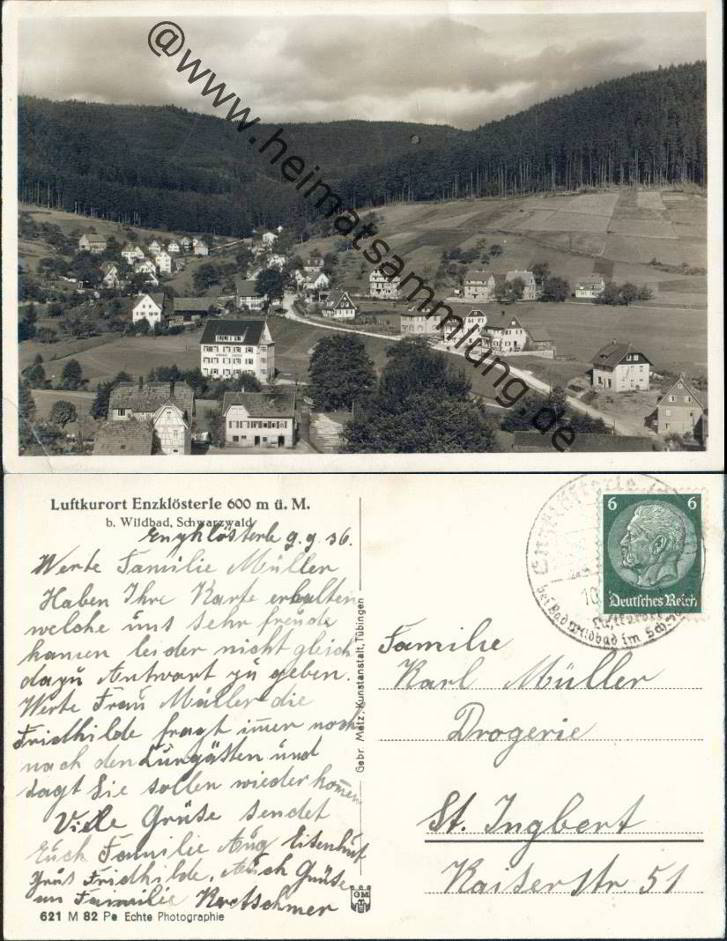 @www.heimatsammlung.de
Luftkurort Enzklösterle 600 m ü. M.
b. Wildbad, Schwarzwald
Enzklösterle 9.9.36.
Werte Familie Müller
Haben Ihre Karte erhalten
welche uns sehr freude
kamen leider nicht gleich
dazu Antwort zu geben.
Werte Frau Müller die
Fridhilde fragt imer noch
nach den Lungästen und
sagt Sie sollen wieder kom̅en
Viele Grüße sendet
Euch Familie Aug Eitenhuf
Grüs Fridhilde, Auch Grüse
an Familie Kretschmer
621 M 82 Pe Echte Photographie
Gebr. Metz, Kunstanstalt, Tübingen
GM
6 6
Deutsches Reich
Enzklösterle
10
Luftkurort
bei Bad Wildbad im Schw
Familie
Karl Müller
Drogerie
St. Ingbert
Kaiserstr 51